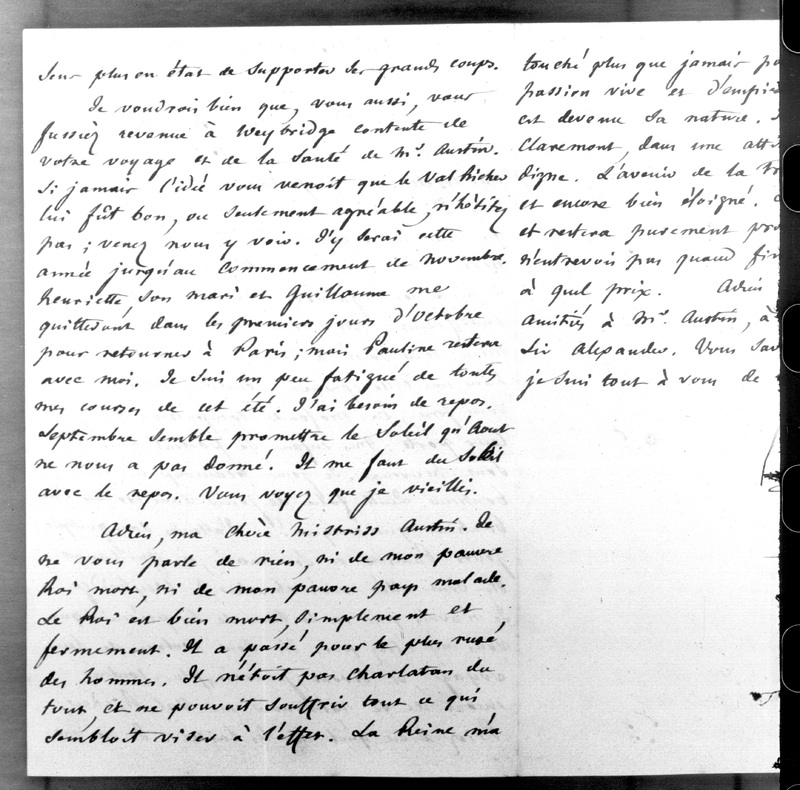 sens plus en état de supporter de grands coups.
Je voudrois bien que, vous aussi, vous
fussiez revenue à Weybridge contente de
votre voyage et de la santé de Mr. Austin.
Si jamais l'idée vous venoit que le Val Richer
lui fût bon, ou seulement agréable, n'hésitez
pas ; venez nous y voir. J'y serai cette
année jusqu'au commencement de novembre.
henriette, son mari et Guillaume me
quitteront dans les premiers jours d'Octobre
pour retourner à Paris ; mais Pauline restera
avec moi. Je suis un peu fatigué de toutes
mes courses de cet été. J'ai besoin de repos.
Septembre semble promettre le soleil qu'Aout
ne nous a pas donné. Il me faut du soleil
avec le repos. Vous voyez que je vieillis.
Adieu, ma chère Mistriss Austin. Je
ne vous parle de rien, ni de mon pauvre
Roi mort, ni de mon pauvre pays malade.
Le Roi est bien mort, simplement et
fermement. Il a passé pour le plus rusé
des hommes. Il n'étoit pas charlatan du
tout, et ne pouvoit souffrir tout ce qui
sembloit viser à l'effet. La Reine m'a
touché plus que jamais
passion vive et
est devenue sa nature.
Claremont, dans une
digne. L'avenir de la
et encore bien éloigné.
et restera purement
n'entrevois pas quand
à quel prix. Adieu
amitiés à Mr. Austin, à
Sir Alexander. Vous
je suis tout à vous de